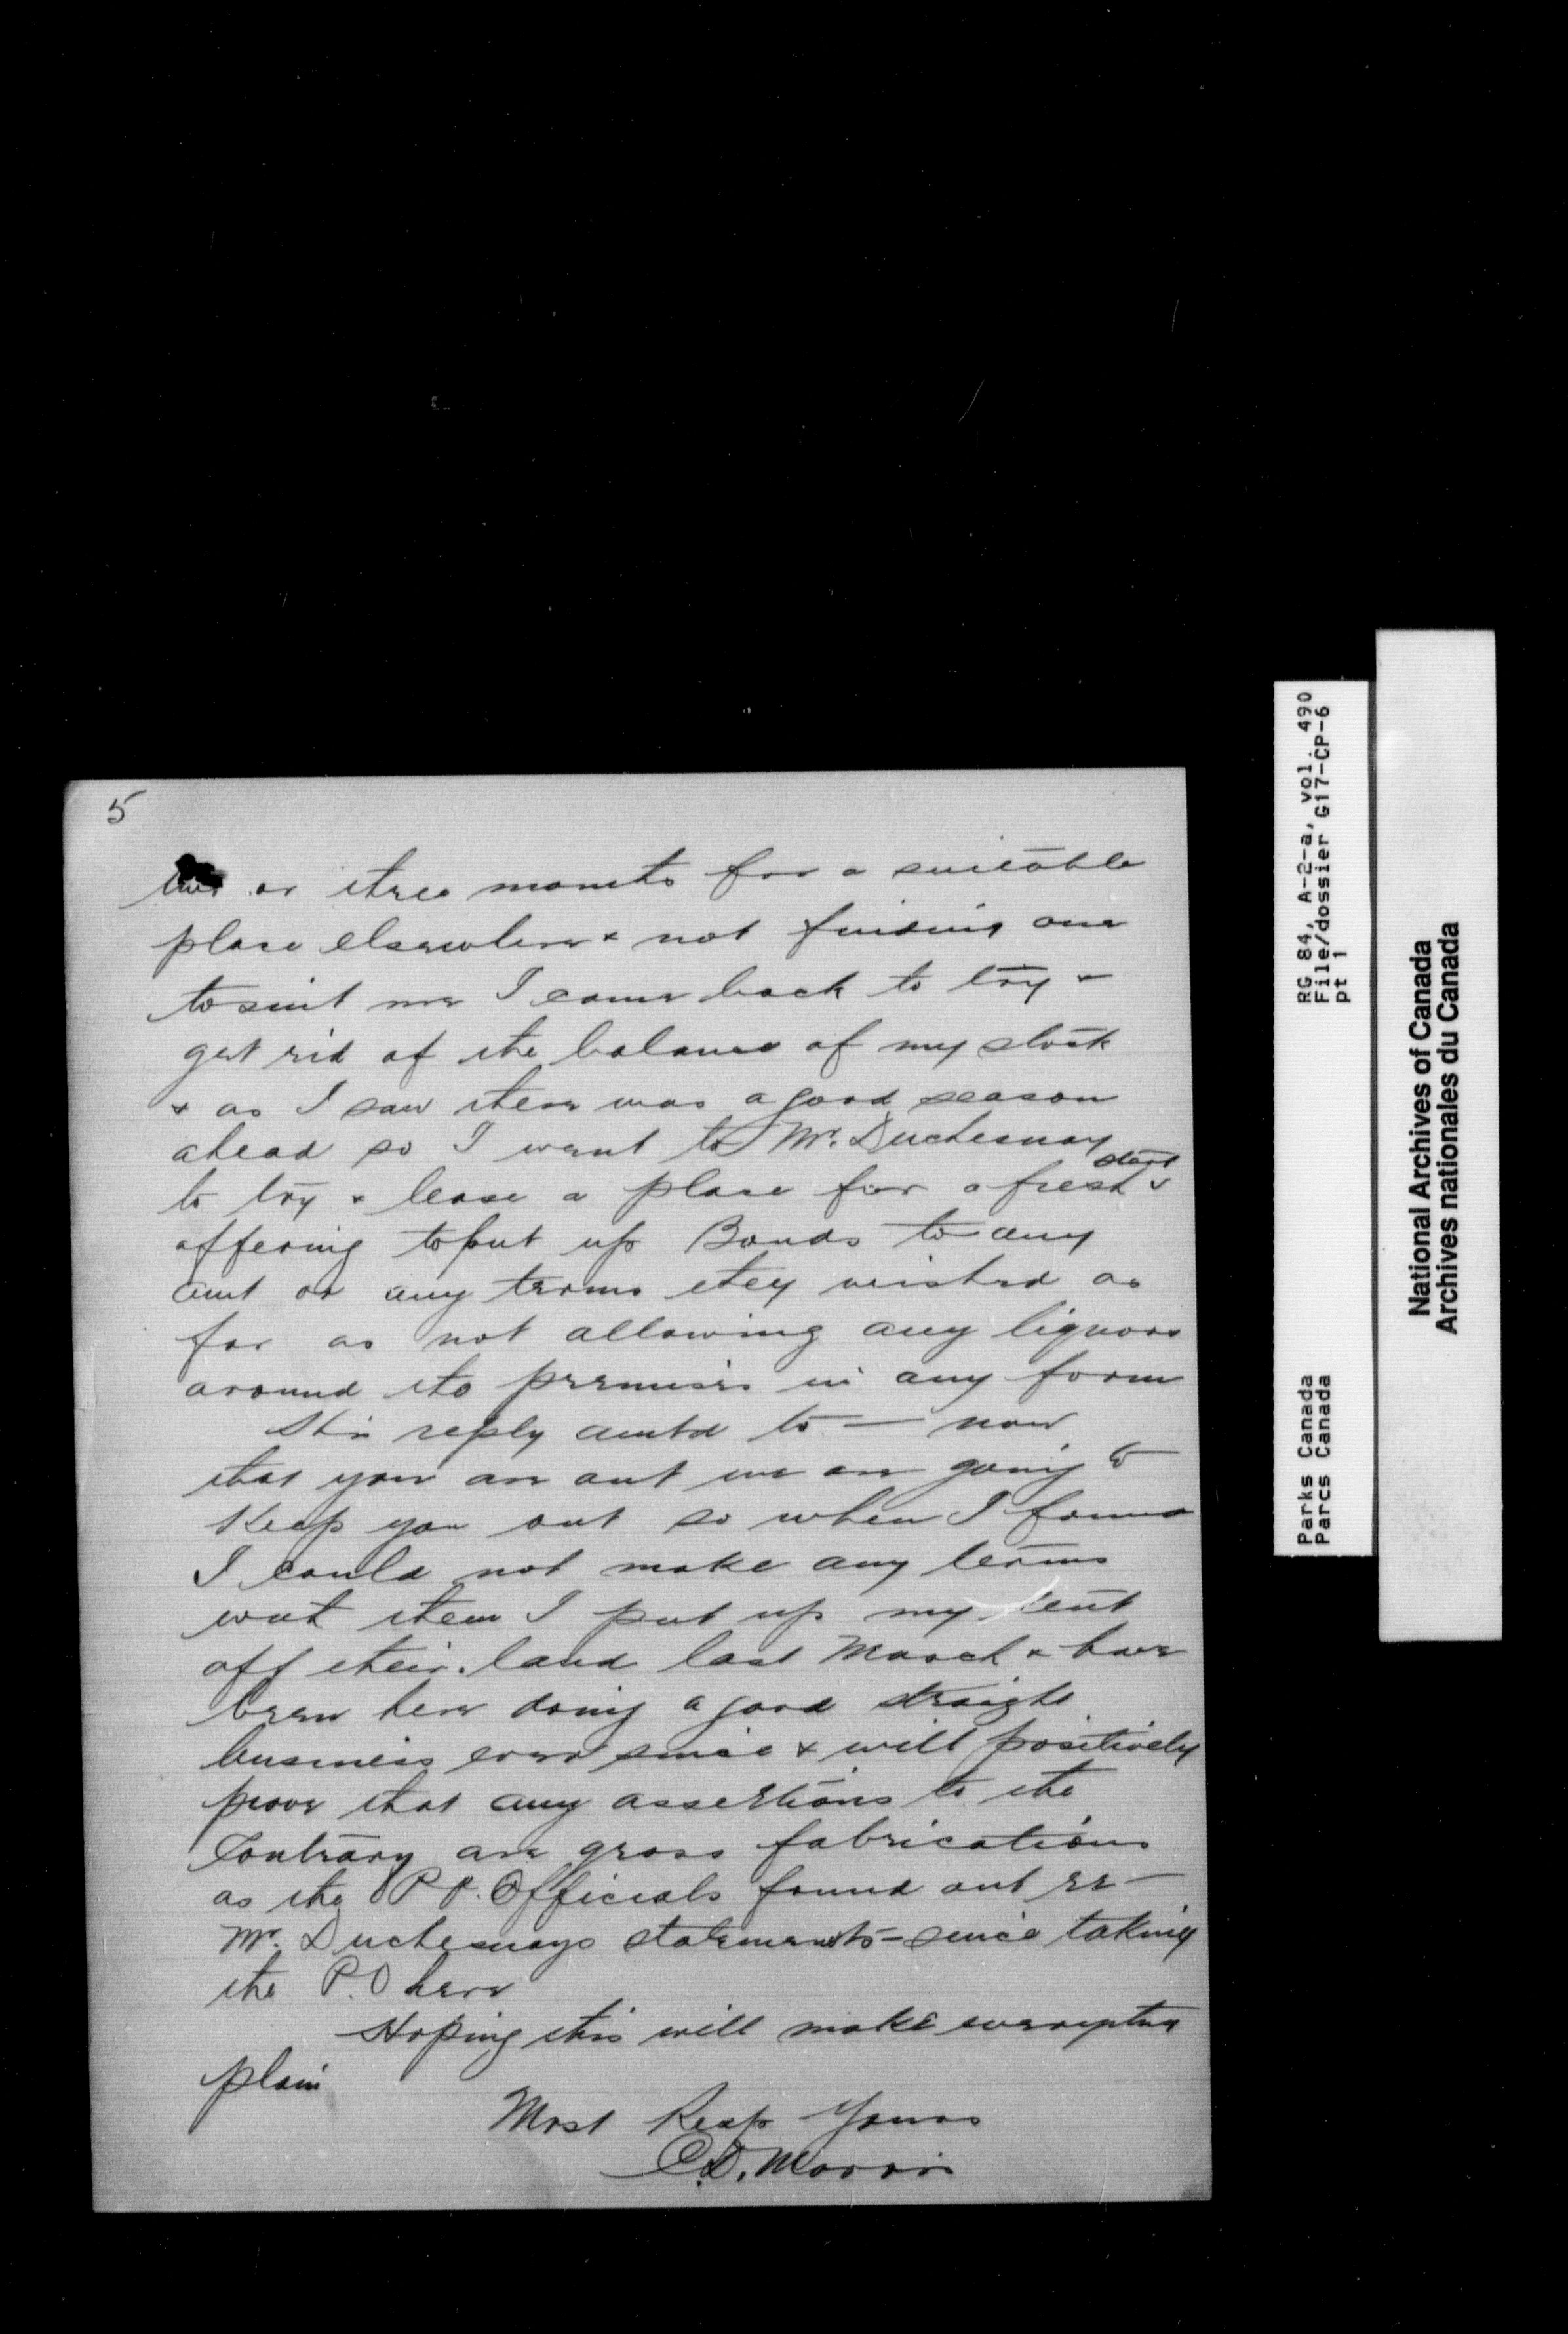 5
two or three months for a suitable
place elsewhere & not finding one
to suit me I came back to try &
get rid of the balance of my stock
& as I saw there was a good season
ahead so I went to Mr. Duchesnay
to try & lease a place for a fresh start &
offering to put up Bonds to any
amt or any terms they wished as
far as not allowing any liquors
around the premises in any form
His reply amtd to — now
that you are out we are going to
keep you out so when I found
I could not make any terms
with them I put up my tent
off their land last March & have
been here doing a good straight
business ever since & will positively
prove that any assertions to the
Contrary are gross fabrications
as the P.O. Officials found out re —
Mr. Duchesnays statements — since taking
the P.O here
Hoping this will make everything
plain
Most Resp Yours
C.D. Morris
RG 84, A-2-a, vol. 490
File/dossier G17-CP-6
pt 1
Parks Canada
Parcs Canada
National Archives of Canada
Archives nationales du Canada